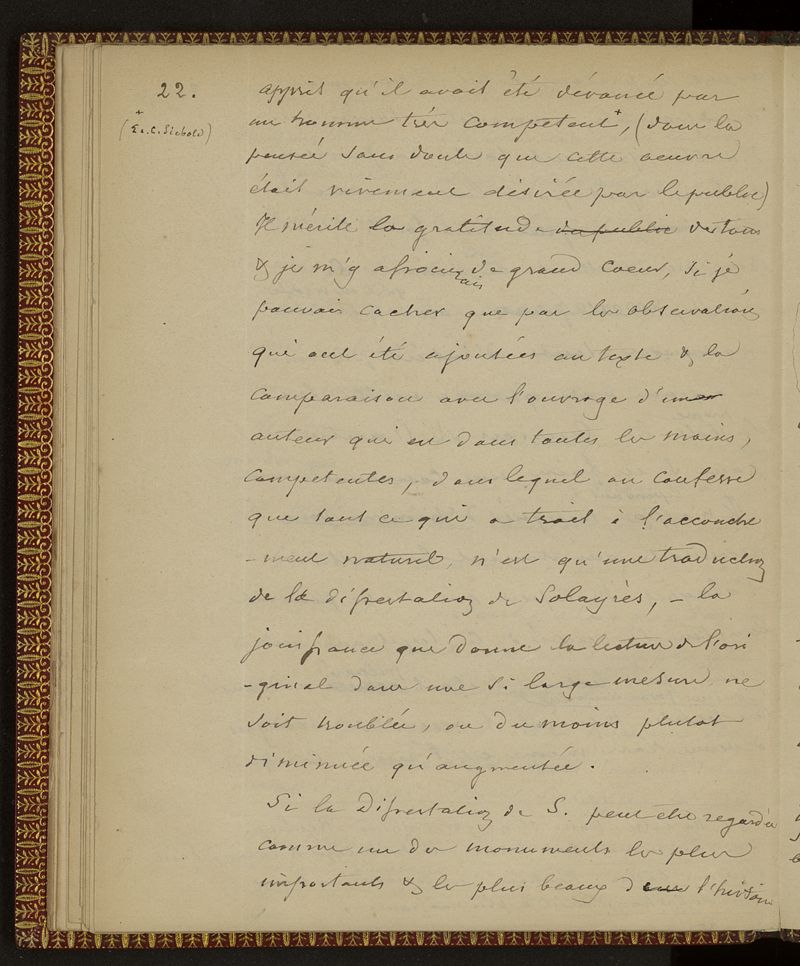 22.
+
(E. C. Siebold)
apprit qu'il avait été dévancé par
un homme très competent+, (dans la
pensée sans doute que cette oeuvre
était vivement désirée par le public)
Il mérite la gratitude du public de tous
& je m'y associerais de grand coeur, si je
pouvais cacher que par les observations
qui ont été ajoutées au texte & la
comparaison avec l'ouvrage d'un
auteur qui est dans toutes les mains,
competentes, dans lequel on confesse
que tout ce qui a trait à l'accouche
-ment naturel, n'est qu'une traduction
de la dissertation de Solayrès, – la
jouissance que donne la lecture de l'ori
-ginal dans une si large mesure ne
soit troublée, ou du moins plutot
diminuée qu'augmentée.
Si la Dissertation de S. peut être regardée
comme un des monuments les plus
importants & les plus beaux dans l'histoire